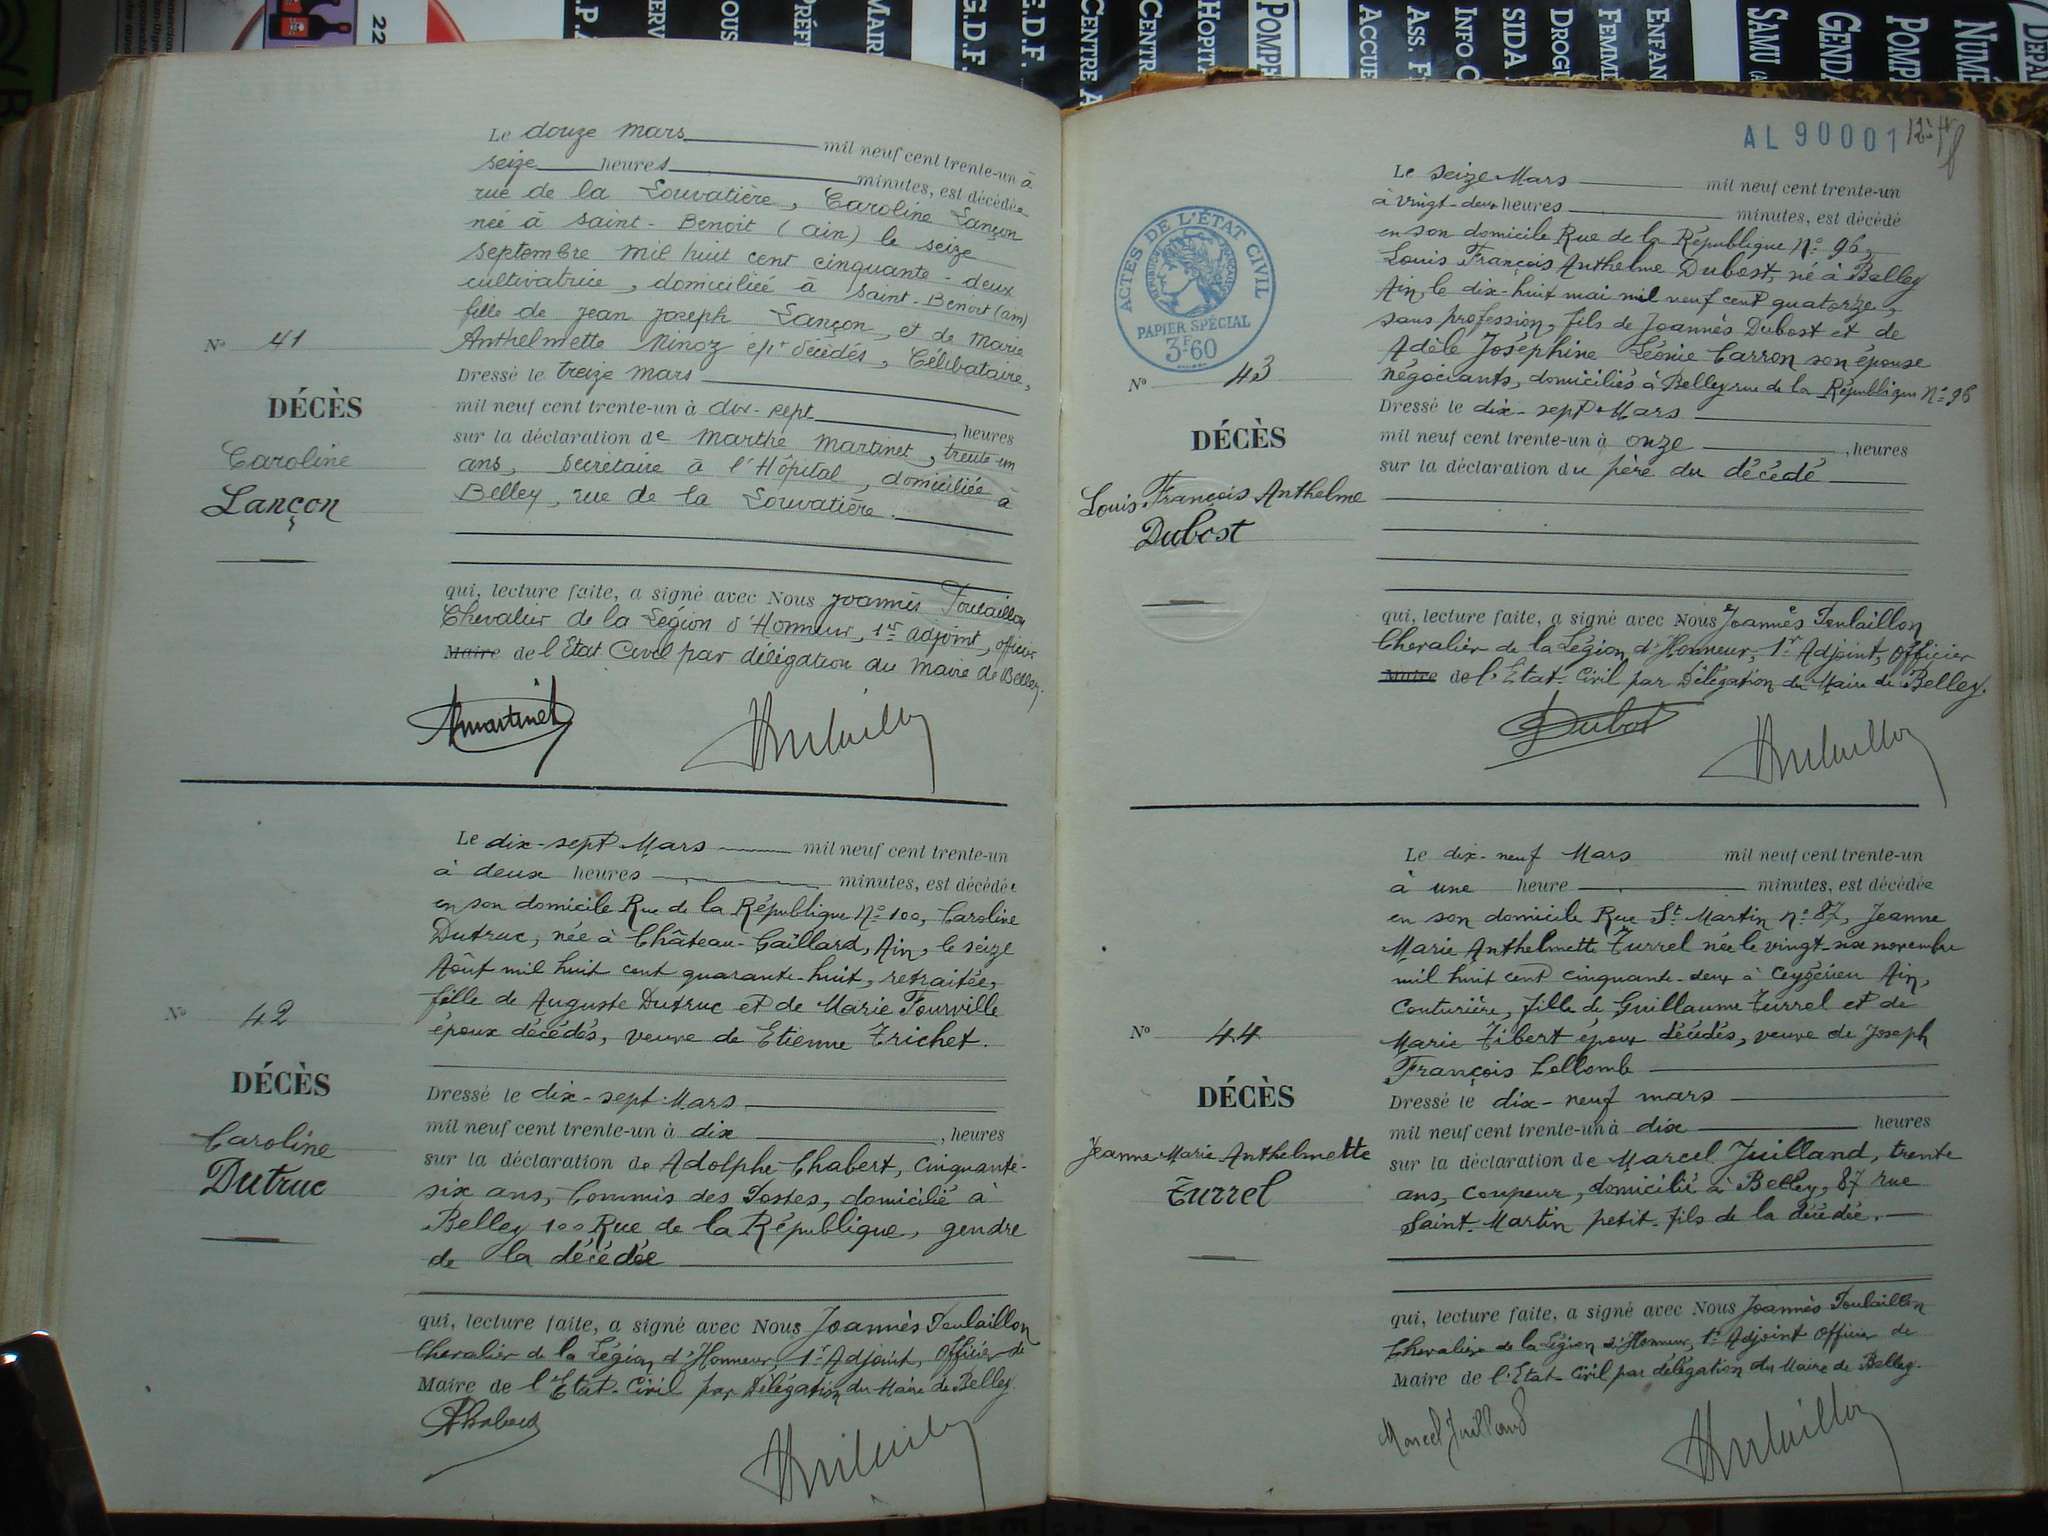 22
MAIRI
G.D.F.
E.D.F.
CENTRE A
CENTR
HOPITA
POMPE
ACCUE
ASS. F
INFO
SIDA
DROGU
FEMME
ENFAN
SAMU
GENDA
POMPI
NUMÉ
DÉPA
Le douze mars mil neuf cent trente-un à
seize heures minutes, est décédée
rue de la Louvatière, Caroline Lançon
née à saint-Benoit (ain) le seize
septembre mil huit cent cinquante-deux
cultivatrice, domiciliée à saint-Benoit (ain)
fille de jean joseph Lançon, et de Marie
Anthelmette Ninoz épx décédés, Célibataire,
Dressé le treize mars
mil neuf cent trente-un à dix-sept heures
sur la déclaration de marthe martinet, trente un
ans, secrétaire à l'Hôpital, domiciliée à
Belley, rue de la Louvatière.
qui, lecture faite, a signé avec Nous joannès Toulaillon
Chevalier de la Légion d'Honneur, 1er adjoint, officier
Maire de l'Etat Civil par délégation du maire de Belley.
Nº 41
DÉCÈS
Caroline
Lançon
Martinet
Le dix-sept Mars mil neuf cent trente-un
à deux heures minutes, est décédée
en son domicile Rue de la République Nº 100, Caroline
Dutruc, née à Château-Gaillard, Ain, le seize
Août mil huit cent quarante-huit, retraitée,
fille de Auguste Dutruc et de Marie Tourville
époux décédés, veuve de Etienne Trichet.
Dressé le dix-sept Mars
mil neuf cent trente-un à dix, heures
sur la déclaration de Adolphe Chabert, cinquante-
six ans, Commis des Postes, domicilié à
Belley 100 Rue de la République, gendre
de la décédée
qui, lecture faite, a signé avec Nous Joannès Toulaillon
Chevalier de la Légion d'Honneur, 1er Adjoint, Officier de
Maire de l'Etat-Civil par Délégation du Maire de Belley.
Nº 42
DÉCÈS
Caroline
Dutruc
AChabert
AL 90001
ACTES DE L'ÉTAT CIVIL
PAPIER SPÉCIAL
3F60
Le seize Mars mil neuf cent trente-un
à vingt-deux heures minutes, est décédé
en son domicile Rue de la République Nº 96,
Louis François Anthelme Dubost, né à Belley
Ain, le dix-huit mai mil neuf cent quatorze,
sans profession, fils de Joannès Dubost et de
Adèle Joséphine Léonie Carron son épouse
négociants, domiciliés à Belley rue de la République Nº 96
Dressé le dix-sept Mars
mil neuf cent trente-un à onze, heures
sur la déclaration du père du décédé
qui, lecture faite, a signé avec Nous Joannès Toulaillon
Chevalier de la Légion d'Honneur, 1er Adjoint, Officier
Maire de l'Etat-Civil par Délégation du Maire de Belley.
Nº 43
DÉCÈS
Louis François Anthelme
Dubost
Dubost
Le dix-neuf Mars mil neuf cent trente-un
à une heure minutes, est décédée
en son domicile Rue St Martin nº 87, Jeanne
Marie Anthelmette Turrel née le vingt-six novembre
mil huit cent cinquante-deux à Ceyzérieu Ain,
Couturière, fille de Guillaume Turrel et de
Marie Tibert époux décédés, veuve de Joseph
François Lollomb
Dressé le dix-neuf mars
mil neuf cent trente-un à dix heures
sur la déclaration de Marcel Juilland, trente
ans, coupeur, domicilié à Belley, 87 rue
Saint-Martin petit-fils de la décédée.
qui, lecture faite, a signé avec Nous Joannès Toulaillon
Chevalier de la Légion d'Honneur, 1er Adjoint Officier de
Maire de l'Etat-Civil par délégation du Maire de Belley.
Nº 44
DÉCÈS
Jeanne Marie Anthelmette
Turrel
Marcel Juilland